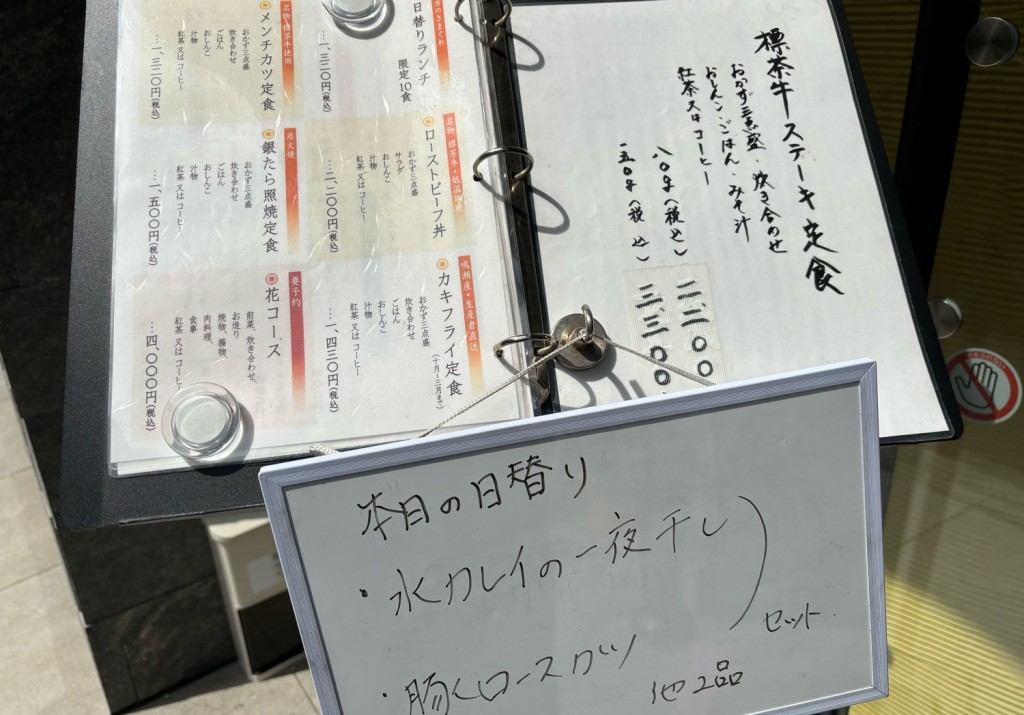 標茶牛ステーキ定食
おかず三点盛・炊き合わせ
おしんこ・ごはん・みそ汁
紅茶又はコーヒー
八〇g(税込)
二、二〇〇
一五〇g(税込)
三、三〇〇
日替りランチ
限定10食
一、三二〇円(税込)
名物 標茶牛使用
メンチカツ定食
おかず三点盛
炊き合わせ
ごはん
おしんこ
汁物
紅茶 又は コーヒー
一、三二〇円(税込)
名物 標茶牛・低温
ローストビーフ丼
おかず三点盛
サラダ
おしんこ
汁物
紅茶 又は コーヒー
二、二〇〇円(税込)
炭火焼
銀たら照焼定食
おかず三点盛
炊き合わせ
ごはん
おしんこ
汁物
紅茶 又は コーヒー
一、五〇〇円(税込)
鳴瀬産・生産者直送
カキフライ定食
(十月〜三月まで)
おかず三点盛
炊き合わせ
ごはん
おしんこ
汁物
紅茶 又は コーヒー
一、四三〇円(税込)
要予約
花コース
前菜、炊き合わせ、
お造り
焼物、揚物、
肉料理、
食事
紅茶 又は コーヒー
四、〇〇〇円(税込)
本日の日替り
・水カレイの一夜干し
・豚ロースカツ
セット
他2品